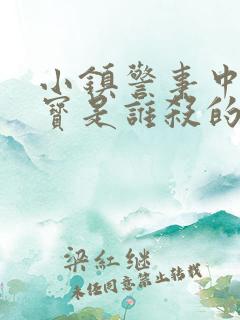 小鎮警事中
寶是誰殺的
梁紅继
未经同意禁止转载